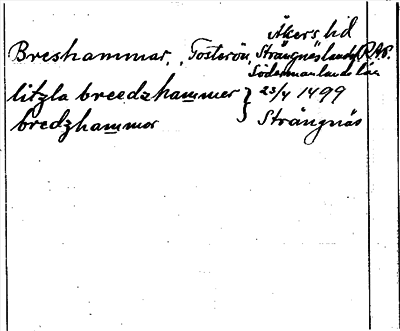 Åkers hd
Breshammar, Tosterön, Strängnäs landsf. R.A.P.
Södermanlands län
litzla breedzhammer } 23/4 1499
bredzhammor Strängnäs